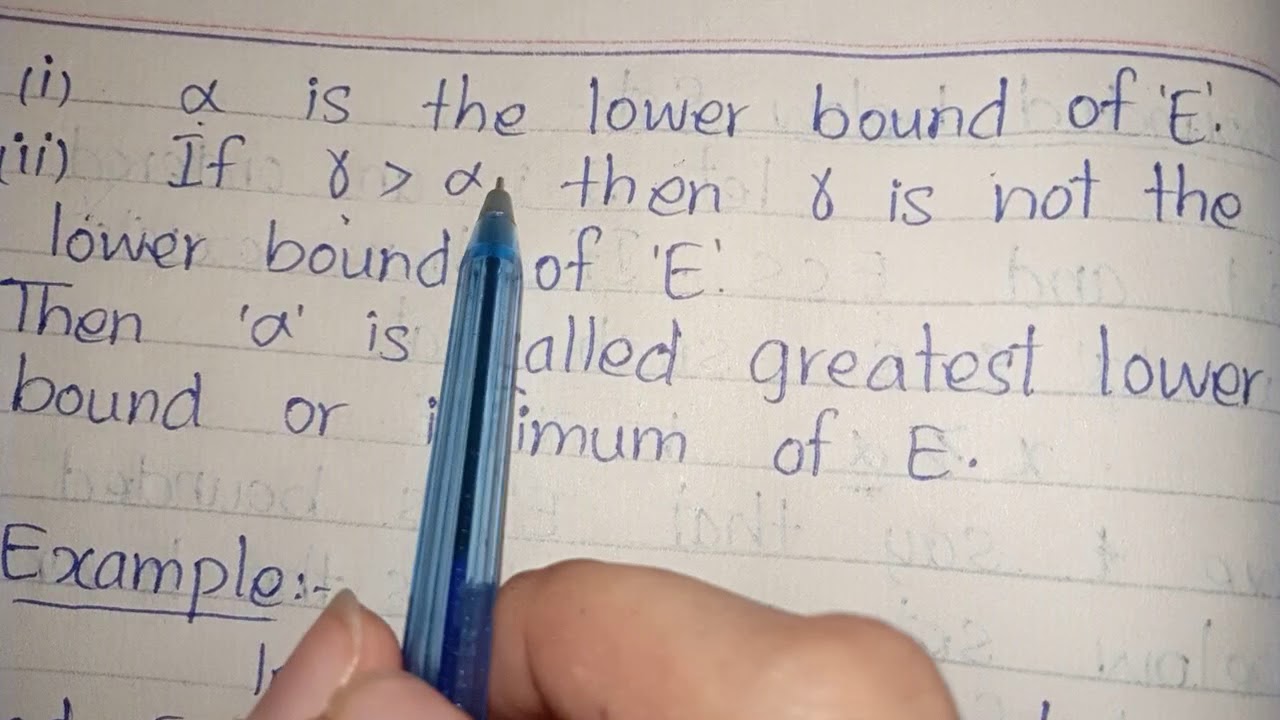 (i) α is the lower bound of 'E'.
(ii) If γ > α, then γ is not the
lower bound of 'E'.
Then 'α' is called greatest lower
bound or of E.
Example:-